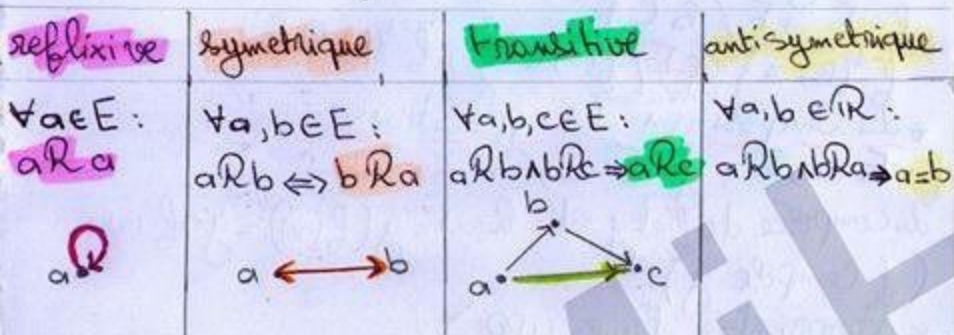 reflixive
symetrique
transitive
antisymetrique
∀a∈E :
aRa
a
∀a,b∈E :
aRb ⇔ bRa
a b
∀a,b,c∈E :
aRb∧bRc ⇒ aRc
b
a c
∀a,b ∈ R :
aRb∧bRa ⇒ a=b